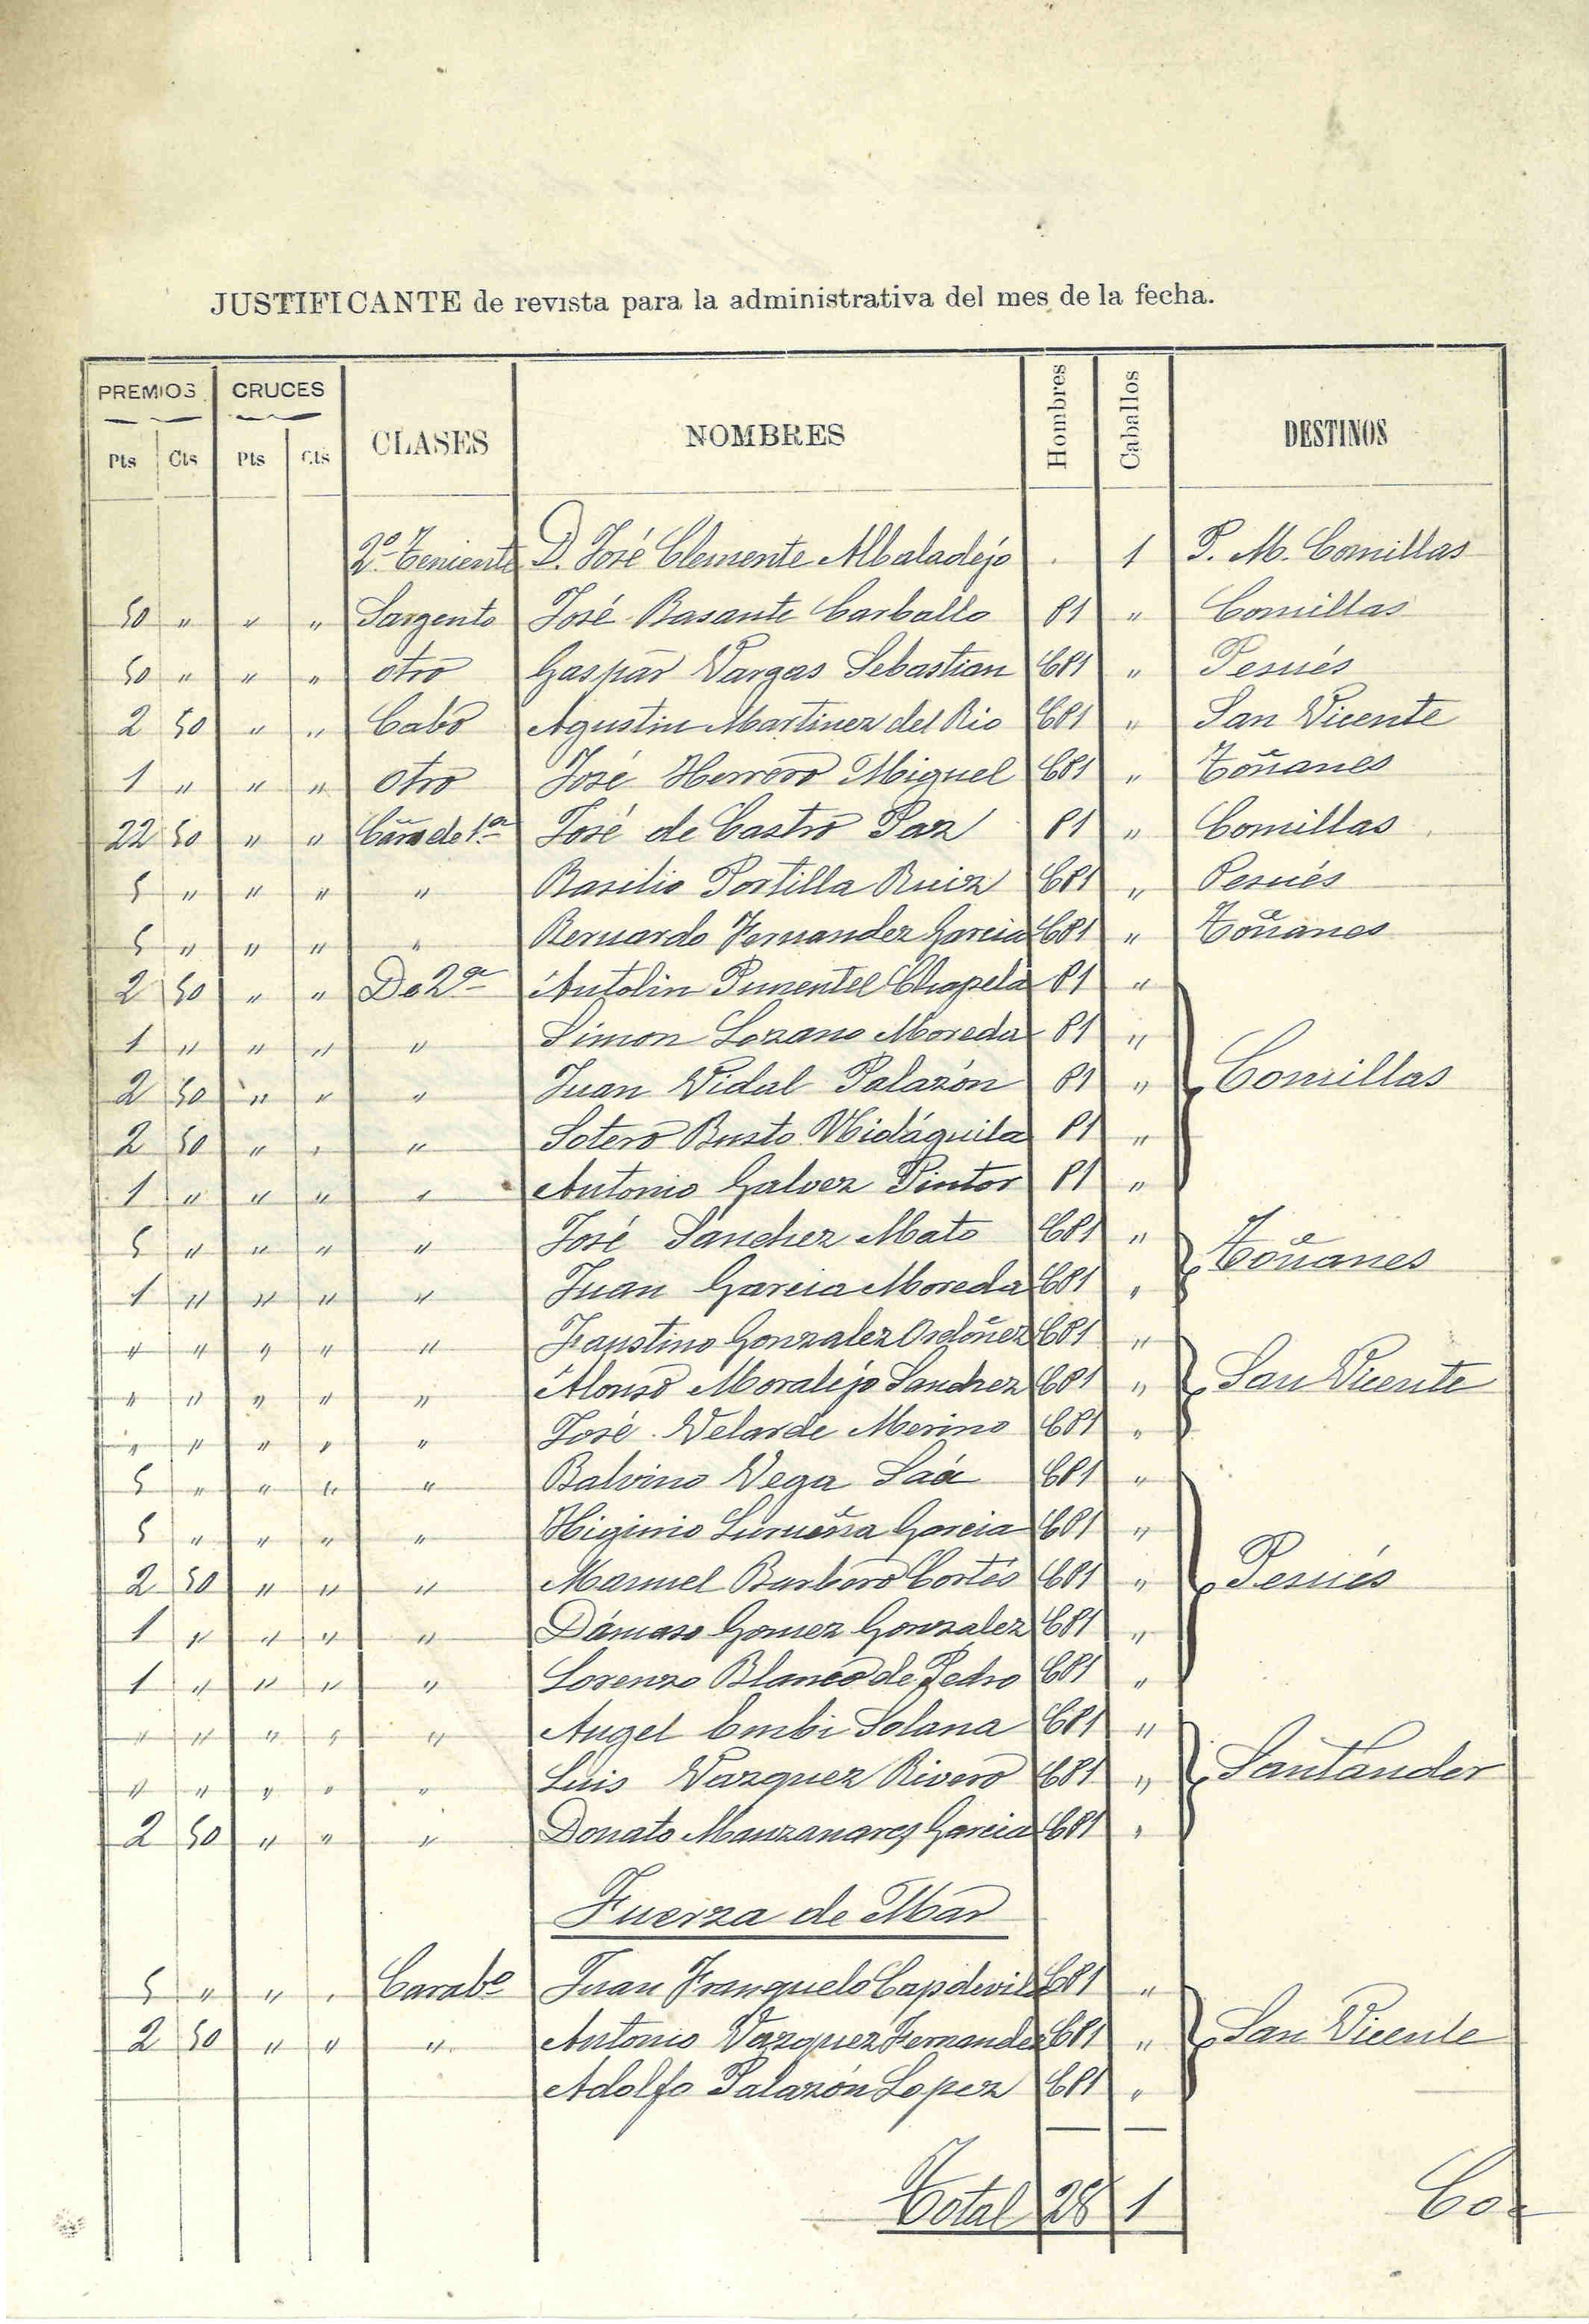 JUSTIFICANTE de revista para la administrativa del mes de la fecha.
PREMIOS CRUCES CLASES NOMBRES Hombres Caballos DESTINOS
Pts Cts Pts Cts
2º Teniente D. José Clemente Albaladejo . 1 P. M. Comillas
50 " " " Sargento José Basante Carballo P1 " Comillas
50 " " " otro Gaspar Vargas Sebastian CP1 " Pesués
2 50 " " Cabo Agustin Martinez del Rio CP1 " San Vicente
1 " " " otro José Herrero Miguel CP1 " Toñanes
22 50 " " Cårº de 1ª José de Castro Paz P1 " Comillas
5 " " " " Basilio Portilla Ruiz CP1 " Pesués
5 " " " " Bernardo Fernandez Garcia CP1 " Toñanes
2 50 " " De 2ª Antolin Pimentel Chapela P1 "
1 " " " " Simon Lozano Moreda P1 "
2 50 " " " Juan Vidal Palazón P1 " Comillas
2 50 " " " Sotero Busto Midáguila P1 "
1 " " " " Antonio Galvez Pintor P1 "
5 " " " " José Sanchez Mato CP1 " Toñanes
1 " " " " Juan Garcia Moreda CP1 "
" " " " " Faustino Gonzalez Ordóñez CP1 "
" " " " " Alonso Moralejo Sanchez CP1 " San Vicente
" " " " " José Velarde Merino CP1 "
5 " " " " Balvino Vega Saá CP1 "
5 " " " " Higinio Lurueña Garcia CP1 "
2 50 " " " Manuel Barbero Cortés CP1 " Pesués
1 " " " " Dámaso Gomez Gonzalez CP1 "
1 " " " " Lorenzo Blanco de Pedro CP1 "
" " " " " Angel Embi Solana CP1 "
" " " " " Luis Vazquez Rivero CP1 " Santander
2 50 " " " Donato Manzanares Garcia CP1 "
Fuerza de Mar
5 " " " Carabº Juan Franquelo Capdevila CP1 "
2 50 " " " Antonio Vazquez Fernandez CP1 " San Vicente
Adolfo Palazón Lopez CP1 "
Total 28 1 Co-